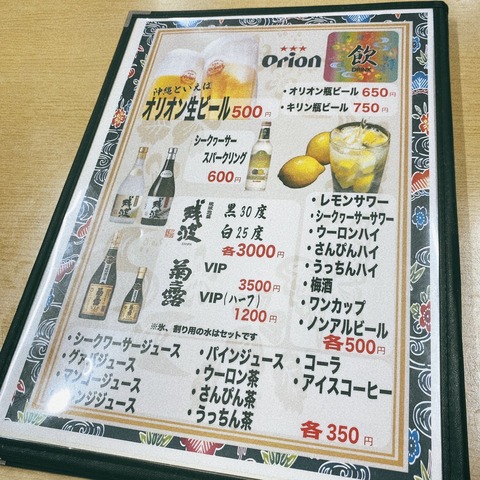 orion
飲
沖縄といえば
オリオン生ビール500円
・オリオン瓶ビール 650円
・キリン瓶ビール 750円
シークヮーサー
スパークリング
600円
残波
黒30度
白25度
各3000円
菊之露
VIP
3500円
VIP(ハーフ)
1200円
※氷、割り用の水はセットです
・レモンサワー
・シークヮーサーサワー
・ウーロンハイ
・さんぴんハイ
・うっちんハイ
・梅酒
・ワンカップ
・ノンアルビール
各500円
・シークワーサージュース
・グァバジュース
・マンゴージュース
ンジジュース
・パインジュース
・ウーロン茶
・さんぴん茶
・うっちん茶
・コーラ
・アイスコーヒー
各350円